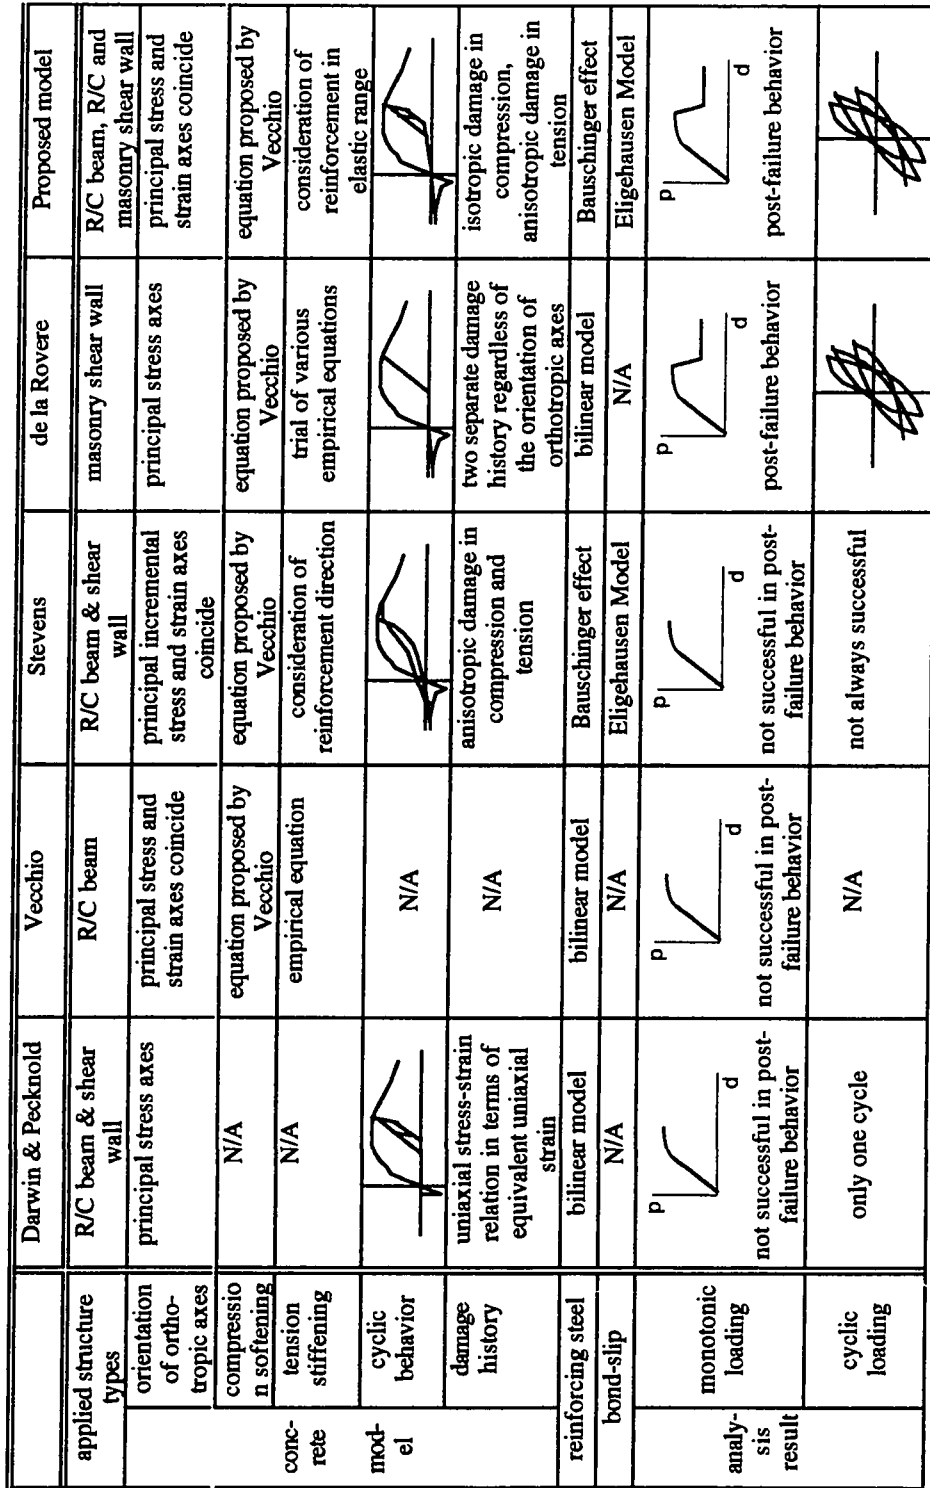 Darwin & Pecknold
Vecchio
Stevens
de la Rovere
Proposed model
applied structure
types
R/C beam & shear
wall
R/C beam
R/C beam & shear
wall
masonry shear wall
R/C beam, R/C and
masonry shear wall
conc-
rete
mod-
el
orientation
of ortho-
tropic axes
principal stress axes
principal stress and
strain axes coincide
principal incremental
stress and strain axes
coincide
principal stress axes
principal stress and
strain axes coincide
compressio
n softening
N/A
equation proposed by
Vecchio
equation proposed by
Vecchio
equation proposed by
Vecchio
equation proposed by
Vecchio
tension
stiffening
N/A
empirical equation
consideration of
reinforcement direction
trial of various
empirical equations
consideration of
reinforcement in
elastic range
cyclic
behavior
N/A
damage
history
uniaxial stress-strain
relation in terms of
equivalent uniaxial
strain
N/A
anisotropic damage in
compression and
tension
two separate damage
history regardless of
the orientation of
orthotropic axes
isotropic damage in
compression,
anisotropic damage in
tension
reinforcing steel
bilinear model
bilinear model
Bauschinger effect
bilinear model
Bauschinger effect
bond-slip
N/A
N/A
Eligehausen Model
N/A
Eligehausen Model
analy-
sis
result
monotonic
loading
p
d
not successful in post-
failure behavior
p
d
not successful in post-
failure behavior
p
d
not successful in post-
failure behavior
p
d
post-failure behavior
p
d
post-failure behavior
cyclic
loading
only one cycle
N/A
not always successful